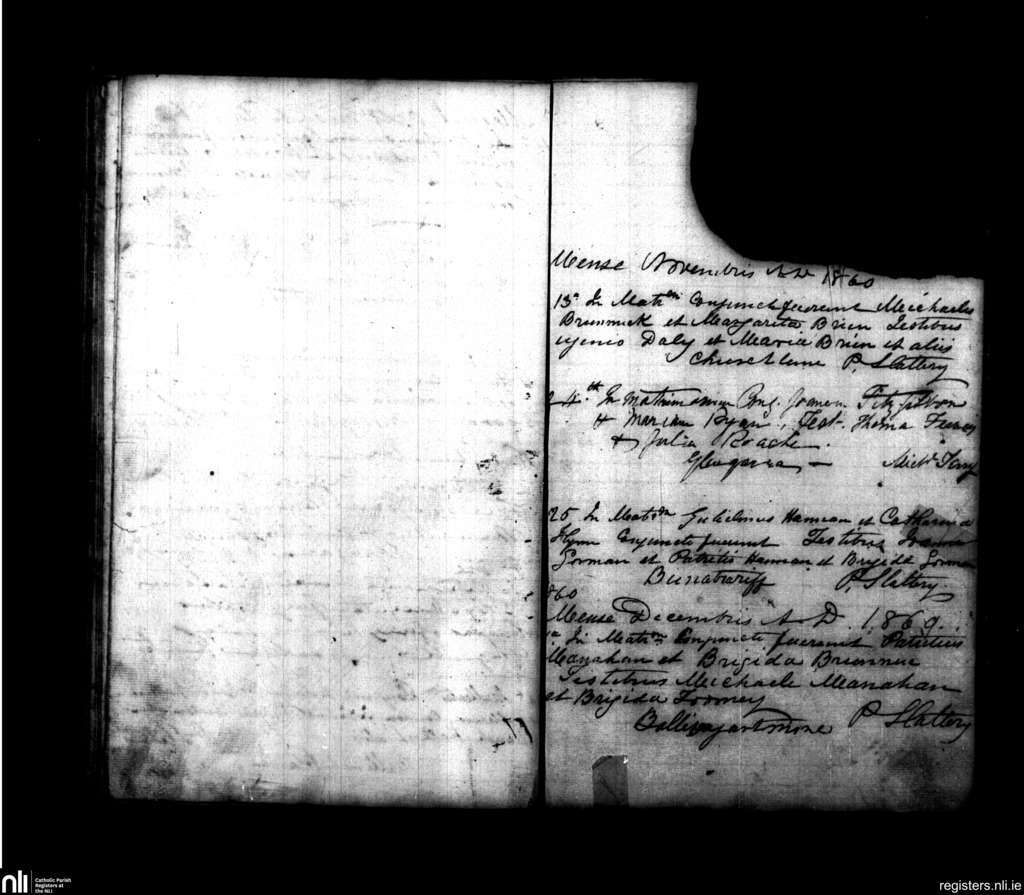 Mense Novembris A D 1860
13ᵃ In Matrm Conjuncti fuerunt Meichaeles
Brunnick et Margarita Brien Testibus
Daly et Maria Brien et aliis
P. Slattery
24th In Matrimonium Conj. Joannem Fitzgibbon
& Mariam Ryan, Test. Thoma
& Julia Roache.
Michl
25 In Matrm Gulielmus Hannan et Catharina
Flynn Conjuncti fuerunt Testibus Joanne
Gorman et Patritio Hannan et Brigida Gorman
P. Slattery
860
Mense Decembris A D 1860.
In Matrm Conjuncti fuerunt Patritius
Manahan et Brigida
Testibus Meichaele Meanahan
et Brigida Toomey
P Slattery
nli
Catholic Parish
Registers at
the NLI
registers.nli.ie